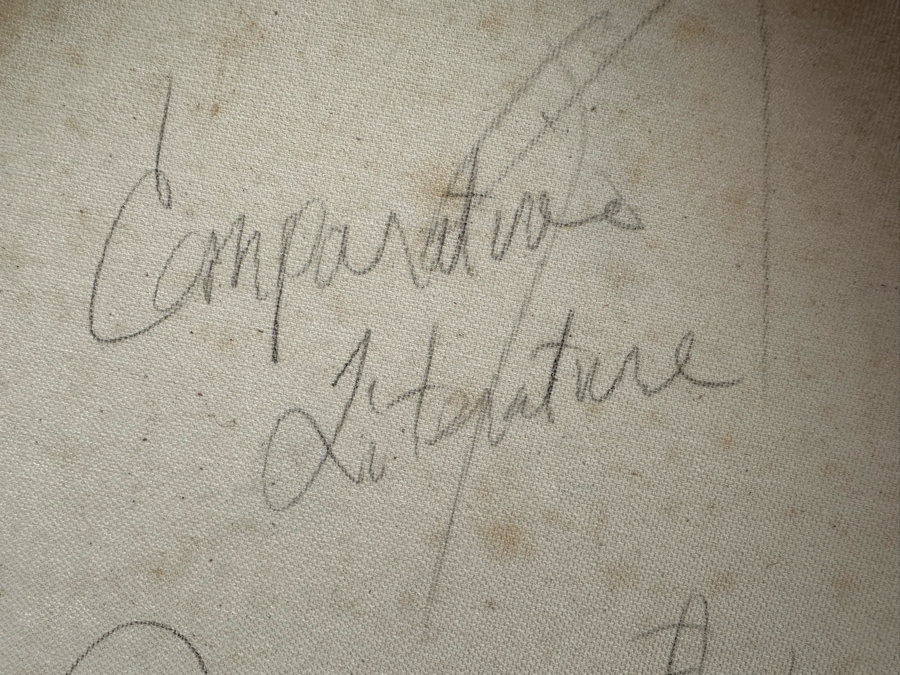 Comparative
Literature